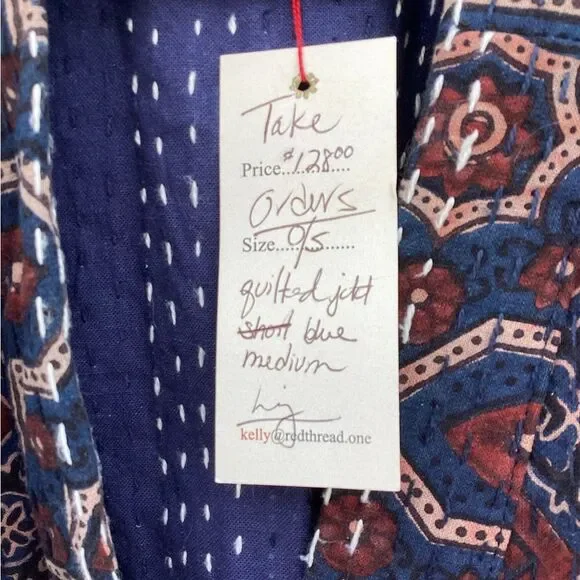 Take
Price....$128.00....
Orders
Size....O/S......
quilted jckt
short blue
medium
kelly@redthread.one